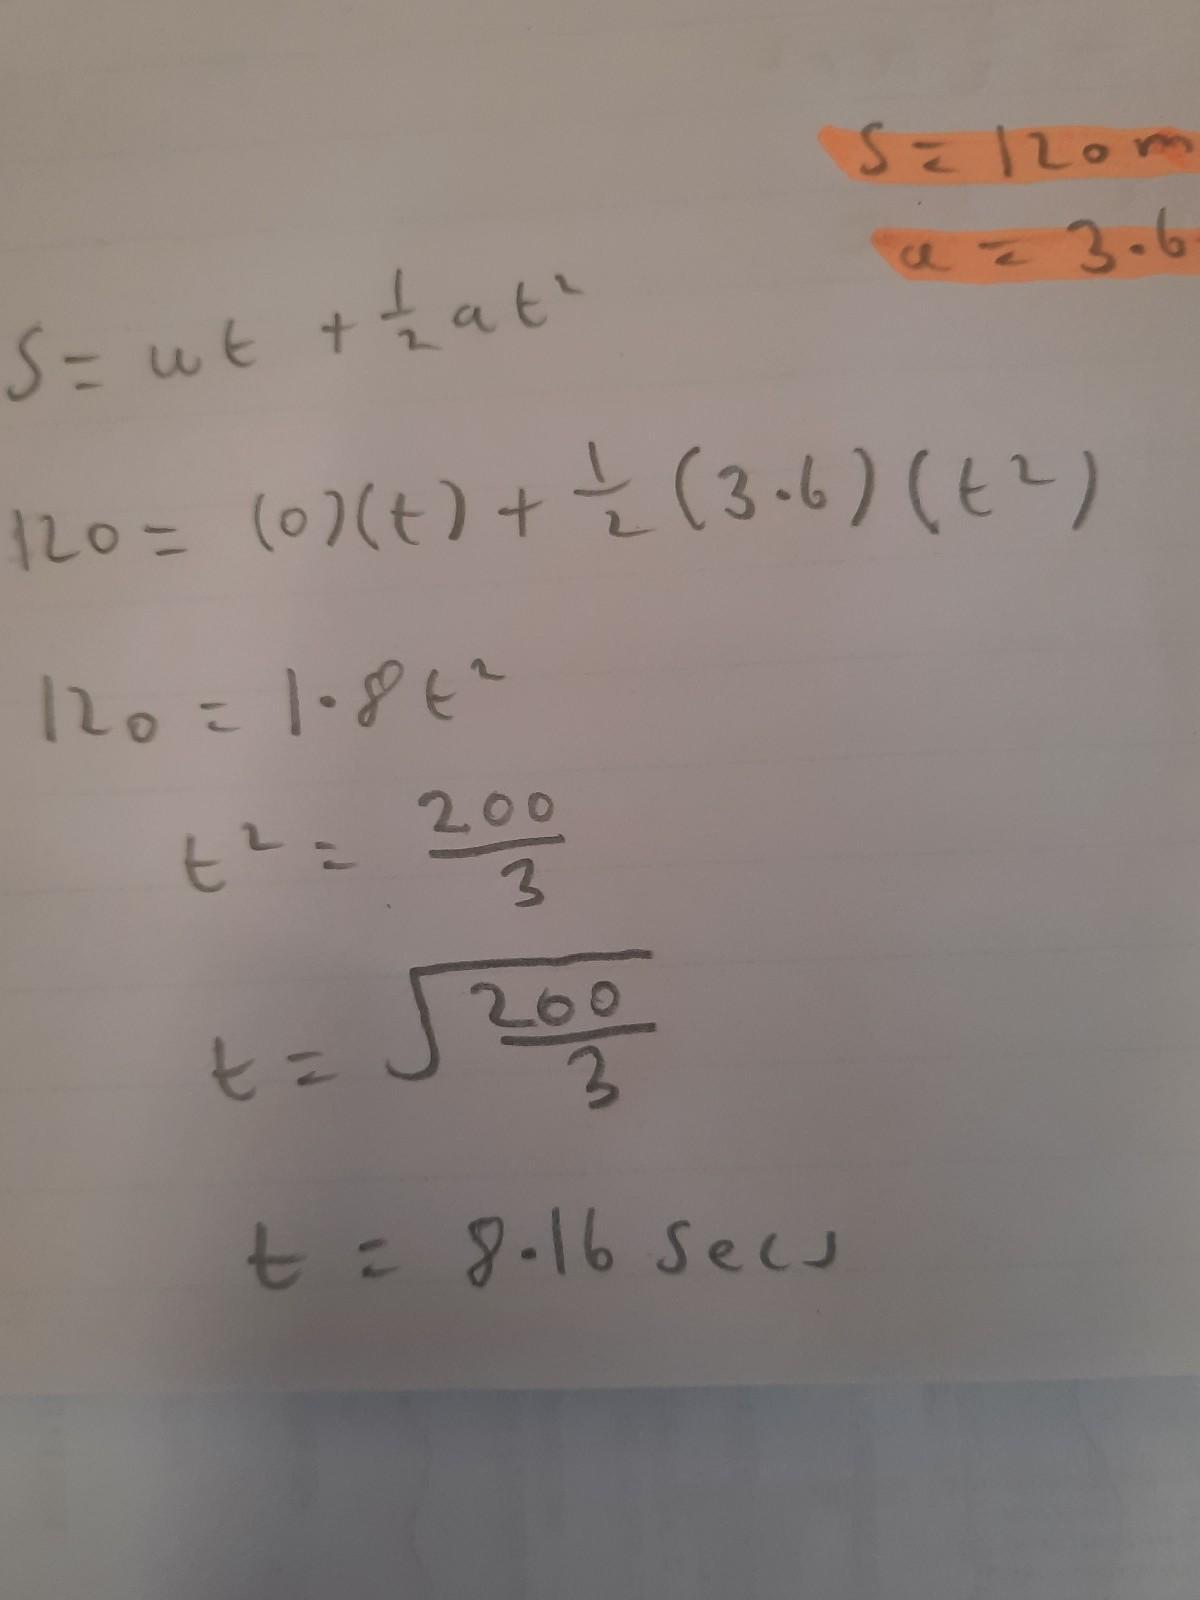 S = 120 m
a = 3.6
S = ut + 1/2 at²
120 = (0)(t) + 1/2 (3.6)(t²)
120 = 1.8t²
t² = 200/3
t = √(200/3)
t = 8.16 secs